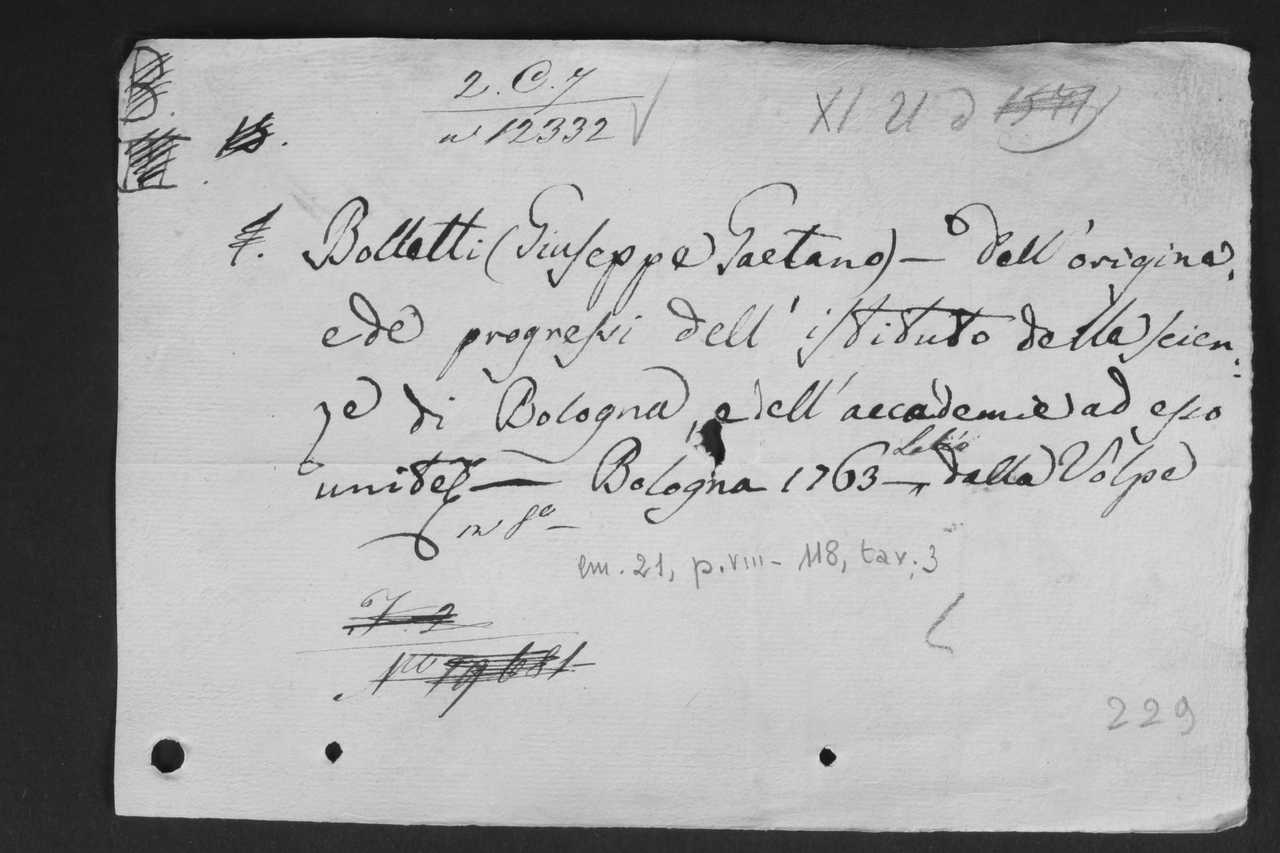 B.
2. C. 7
n° 12332
XI U d 1571
Bolletti (Giuseppe Gaetano) — dell'origine,
e de progressi dell'istituto della scien-
ze di Bologna, e dell'accademie ad esso
unite — Bologna 1763 — Lelio dalla Volpe
in 8°
em. 21, p. VIII - 118, tav. 3
7. 2
n° 19681
229